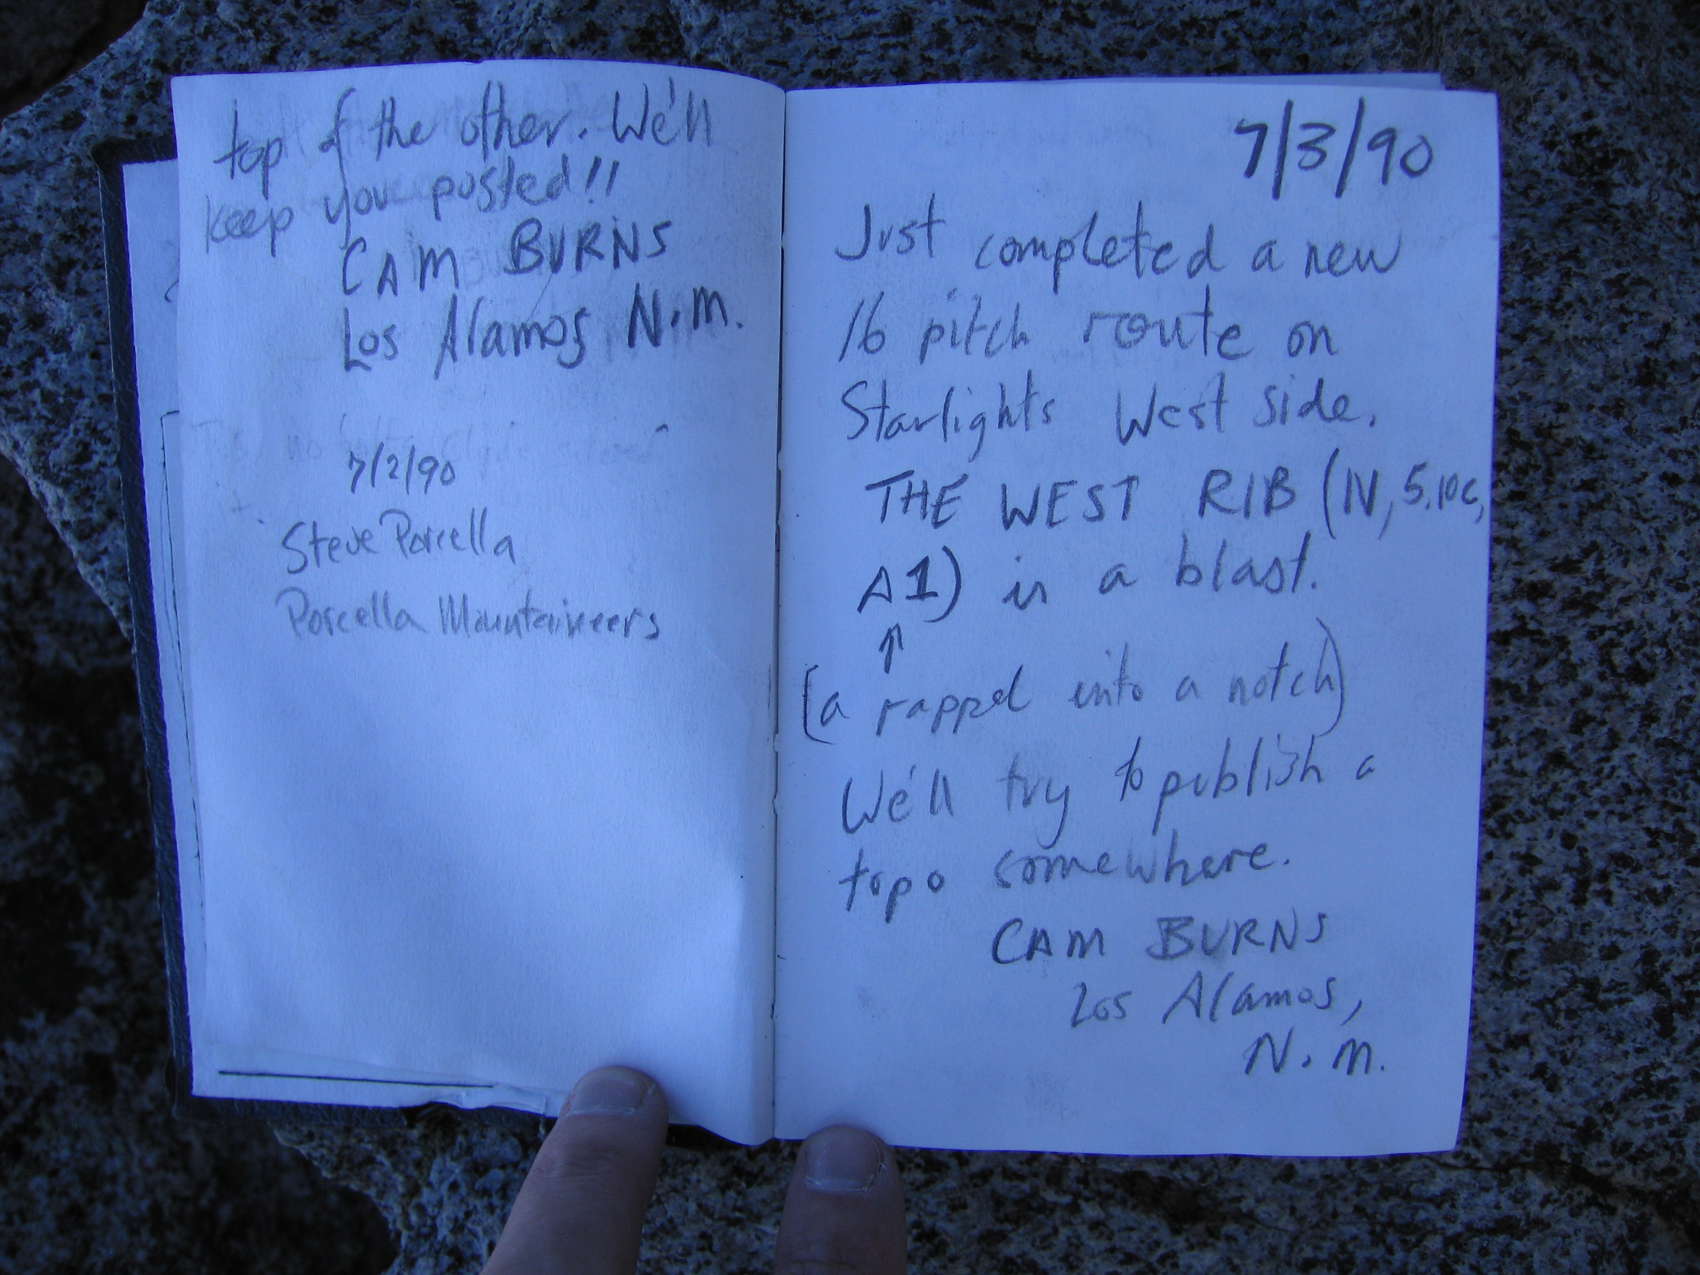 top of the other. We'll
keep you posted!!
CAM BURNS
Los Alamos N.M.
7/2/90
Steve Porcella
Porcella Mountaineers
7/3/90
Just completed a new
16 pitch route on
Starlights West side.
THE WEST RIB (IV, 5.10c,
A1) is a blast.
↑
(a rappel into a notch)
We'll try to publish a
topo somewhere.
CAM BURNS
Los Alamos,
N.M.